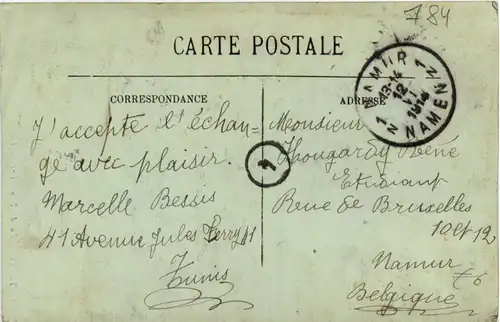 784
CARTE POSTALE
CORRESPONDANCE
ADRESSE
NAMUR 1 N
13-14
12 VI
1914
N 1 NAMEN
1
J'accepte l'échan-
ge avec plaisir.
Marcelle Bessis
41 Avenue Jules Ferry 41
Tunis
Monsieur
Hougardy René
Etudiant
Rue de Bruxelles
10 et 12
Namur
Belgique
€6